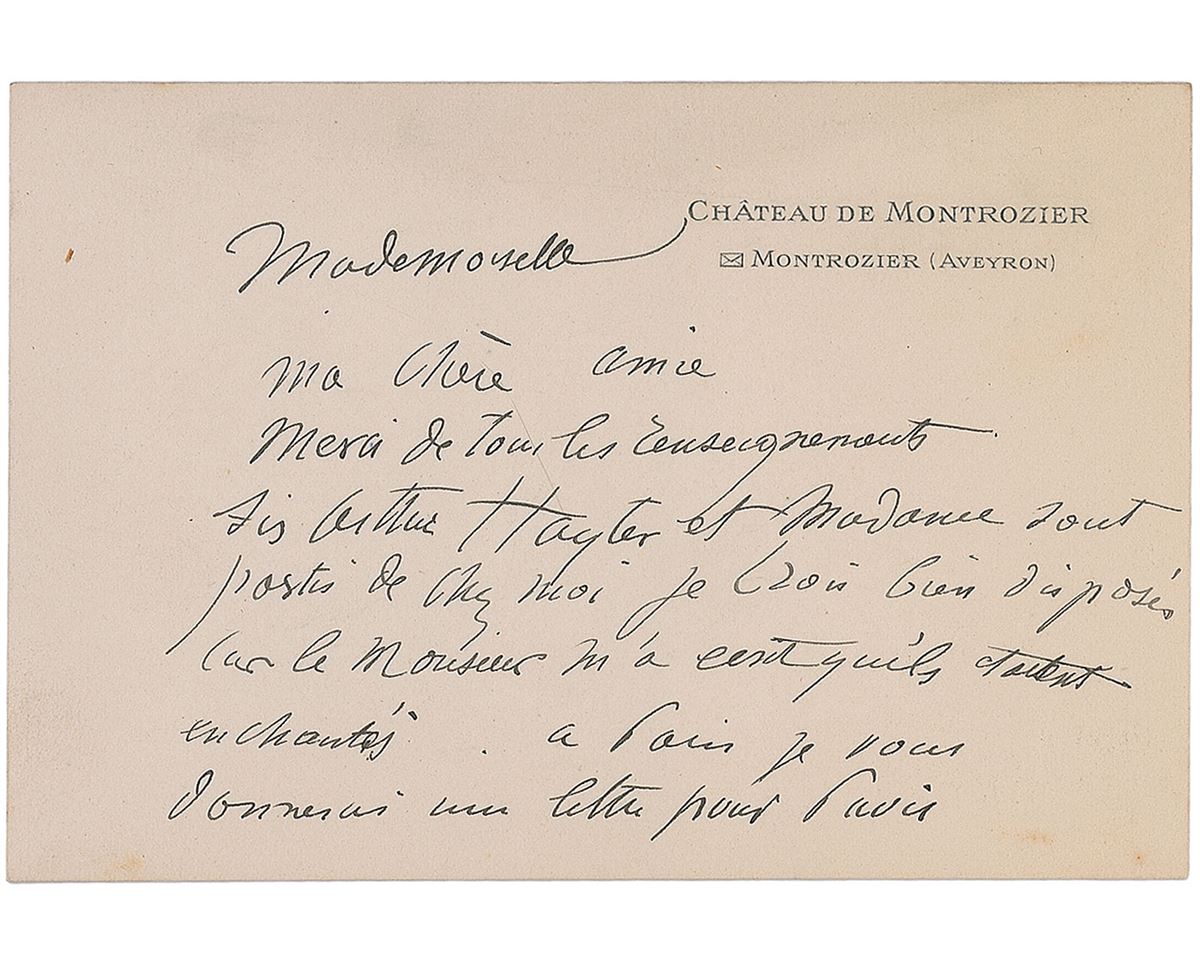 CHÂTEAU DE MONTROZIER
MONTROZIER (AVEYRON)
Mademoiselle
Ma chère amie
Merci de tous les renseignements
Sir Arthur Hayter et Madame sont
partis de chez moi je crois bien disposés
car le Monsieur m'a écrit qu'ils étaient
enchantés. a Paris je vous
donnerai une lettre pour Paris